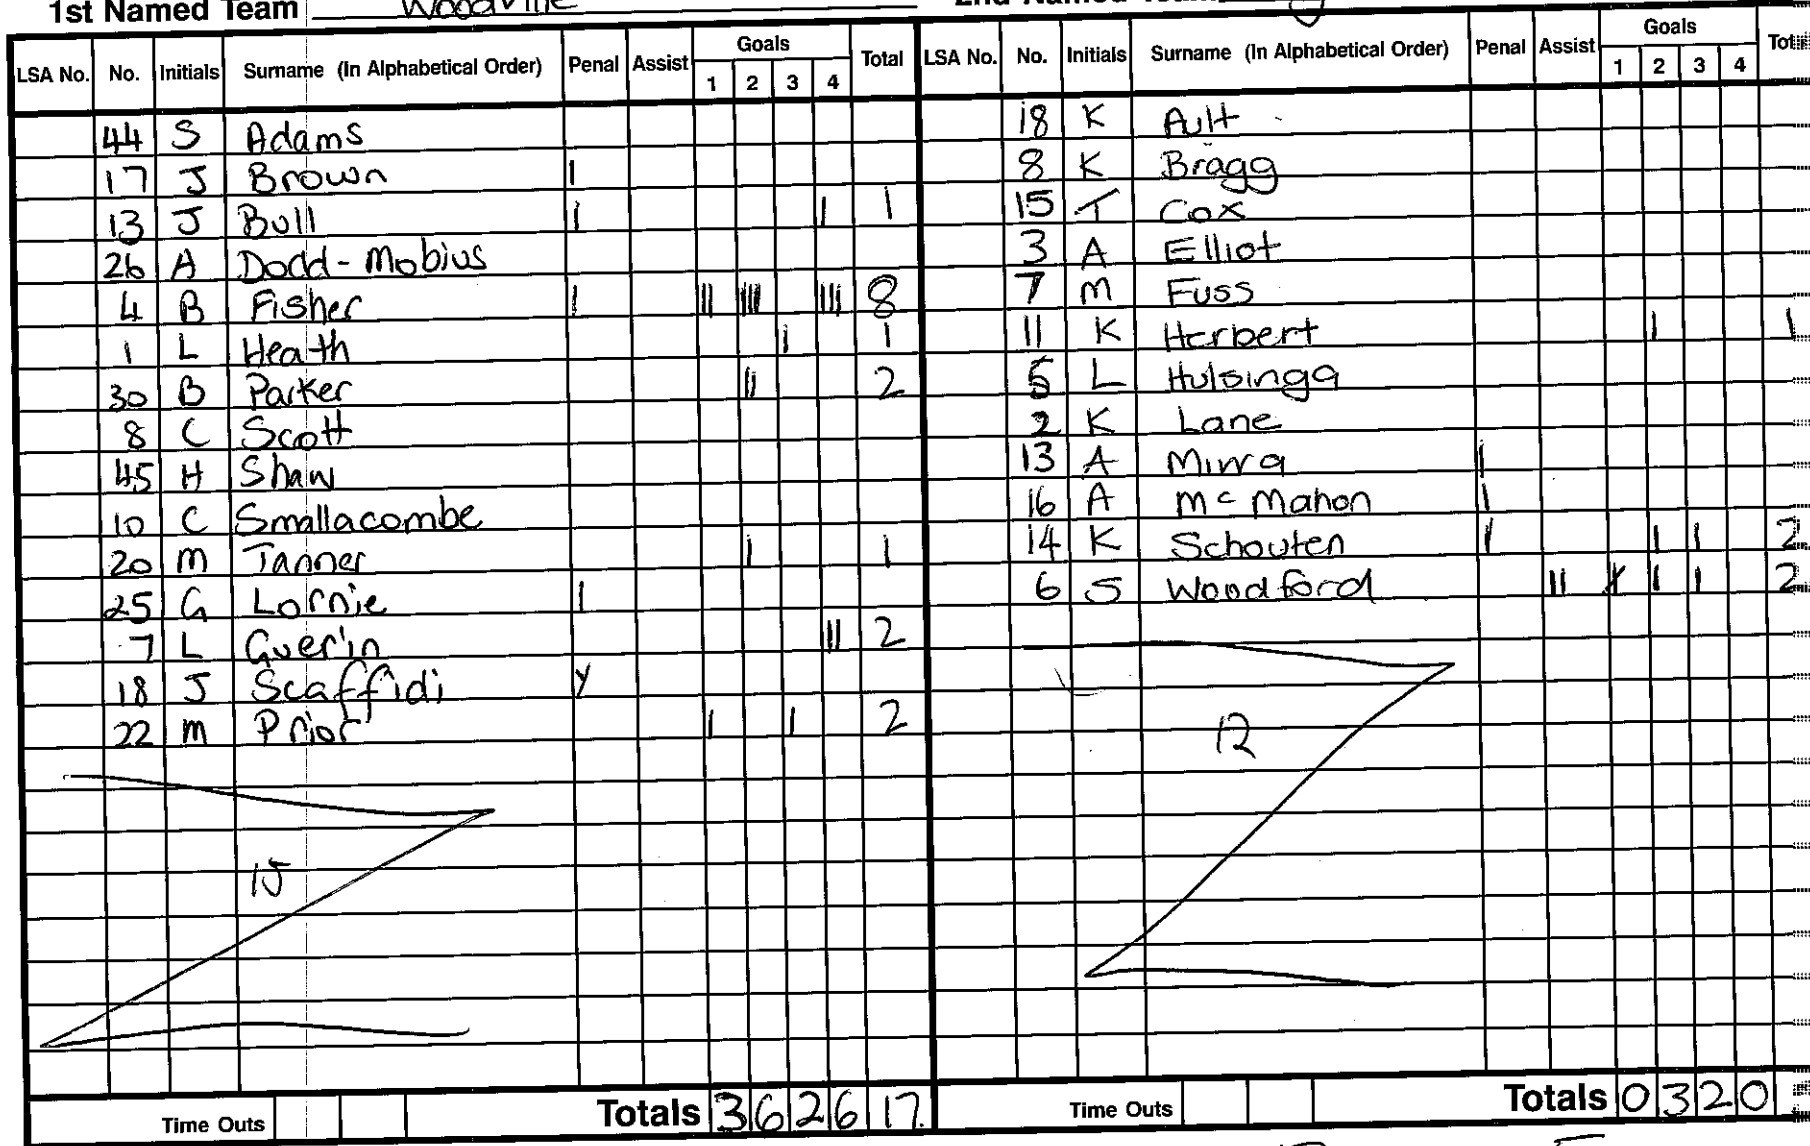 1st Named Team Woodville
LSA No. No. Initials Surname (In Alphabetical Order) Penal Assist Goals 1 2 3 4 Total
44 S Adams
17 J Brown |
13 J Bull | | 1
26 A Dodd-Mobius
4 B Fisher | || |||| ||| 8
1 L Heath | 1
30 B Parker || 2
8 C Scott
45 H Shaw
10 C Smallacombe
20 M Tanner | 1
25 G Lornie |
7 L Guerin || 2
18 J Scaffidi Y
22 M Prior | | 2
15
Time Outs Totals 3 6 2 6 17.
2nd Named Team
LSA No. No. Initials Surname (In Alphabetical Order) Penal Assist Goals 1 2 3 4
18 K Ault
8 K Bragg
15 T Cox
3 A Elliot
7 M Fuss
11 K Herbert | 1
5 L Hulsinga
2 K Lane
13 A Mirra |
16 A McMahon |
14 K Schouten | | | 2
6 S Woodford || | | 2
12
Time Outs Totals 0 3 2 0